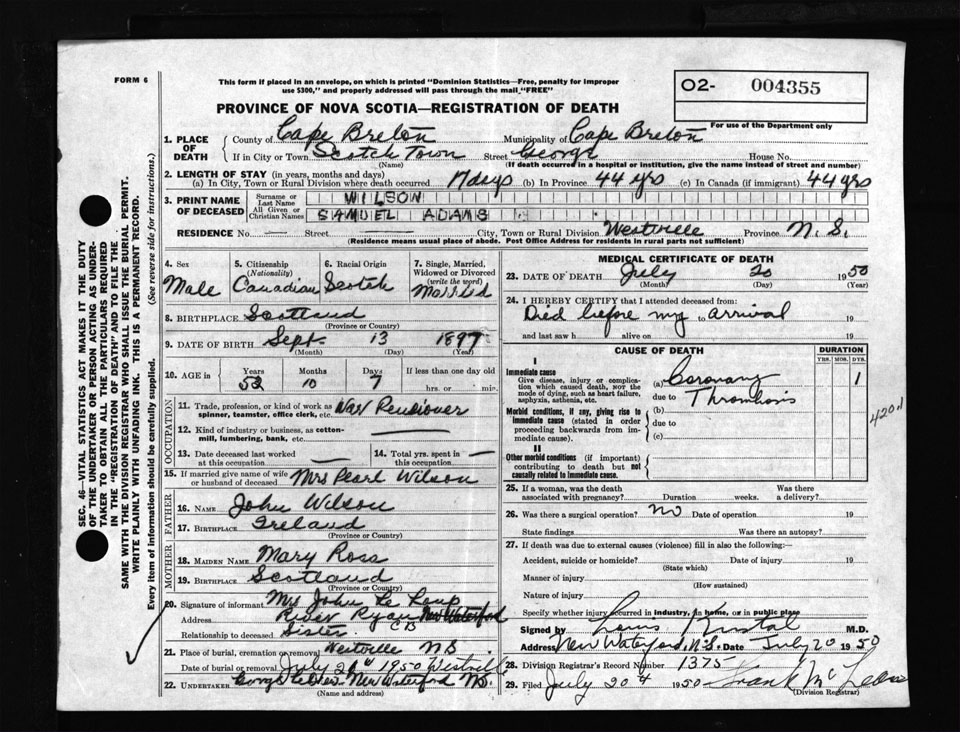 FORM 6
This form if placed in an envelope, on which is printed "Dominion Statistics—Free, penalty for improper
use $300," and properly addressed will pass through the mail "FREE"
O2- 004355
For use of the Department only
PROVINCE OF NOVA SCOTIA—REGISTRATION OF DEATH
1. PLACE OF DEATH
County of Cape Breton Municipality of Cape Breton
If in City or Town Scotch Town Street George House No.
(Name) (If death occurred in a hospital or institution, give the name instead of street and number)
2. LENGTH OF STAY (in years, months and days)
(a) In City, Town or Rural Division where death occurred 17 days (b) In Province 44 yrs (c) In Canada (if immigrant) 44 yrs
3. PRINT NAME OF DECEASED
Surname or Last Name WILSON
All Given or Christian Names SAMUEL ADAMS
RESIDENCE No. — Street — City, Town or Rural Division Westville Province N. S.
(Residence means usual place of abode. Post Office Address for residents in rural parts not sufficient)
4. Sex Male
5. Citizenship (Nationality) Canadian
6. Racial Origin Scotch
7. Single, Married, Widowed or Divorced (write the word) Married
8. BIRTHPLACE Scotland
(Province or Country)
9. DATE OF BIRTH Sept. 13 1897
(Month) (Day) (Year)
10. AGE in Years 52 Months 10 Days 7 If less than one day old
hrs. or min.
OCCUPATION
11. Trade, profession, or kind of work as spinner, teamster, office clerk, etc. War Pensioner
12. Kind of industry or business, as cotton-mill, lumbering, bank, etc. —
13. Date deceased last worked at this occupation —
14. Total yrs. spent in this occupation —
15. If married give name of wife or husband of deceased Mrs Pearl Wilson
FATHER
16. Name John Wilson
17. Birthplace Ireland
(Province or Country)
MOTHER
18. Maiden Name Mary Ross
19. Birthplace Scotland
(Province or Country)
20. Signature of informant Mrs John Le
Address River Ryan New Waterford
C B
Relationship to deceased Sister
21. Place of burial, cremation or removal Westville N S
Date of burial or removal July 21st 1950 Westville
22. Undertaker New Waterford N S.
(Name and address)
MEDICAL CERTIFICATE OF DEATH
23. DATE OF DEATH July 20 1950
(Month) (Day) (Year)
24. I HEREBY CERTIFY that I attended deceased from:
Died before my to arrival 19
and last saw h alive on 19
CAUSE OF DEATH
DURATION
YRS. MOS. DYS.
I
Immediate cause
Give disease, injury or complication which caused death, NOT the mode of dying, such as heart failure, asphyxia, asthenia, etc.
(a) Coronary 1
due to Thrombosis
Morbid conditions, if any, giving rise to immediate cause (stated in order proceeding backwards from immediate cause).
(b)
due to
(c)
II
Other morbid conditions (if important) contributing to death but not causally related to Immediate cause.
420.1
25. If a woman, was the death associated with pregnancy? Duration weeks. Was there a delivery?
26. Was there a surgical operation? no Date of operation 19
State findings Was there an autopsy?
27. If death was due to external causes (violence) fill in also the following:—
Accident, suicide or homicide? Date of injury 19
(State which)
Manner of injury
(How sustained)
Nature of injury
Specify whether injury occurred in industry, in home, or in public place
Signed by Louis M.D.
Address New Waterford, N.S. Date July 20 1950
28. Division Registrar's Record Number 1375
29. Filed July 20th 1950 Frank Mc
(Division Registrar)
SEC. 46—VITAL STATISTICS ACT MAKES IT THE DUTY
OF THE UNDERTAKER OR PERSON ACTING AS UNDER-
TAKER TO OBTAIN ALL THE PARTICULARS REQUIRED
IN THE "REGISTRATION OF DEATH" AND TO FILE THE
SAME WITH THE DIVISION REGISTRAR WHO SHALL ISSUE THE BURIAL PERMIT.
WRITE PLAINLY WITH UNFADING INK. THIS IS A PERMANENT RECORD.
Every item of information should be carefully supplied. (See reverse side for instructions.)